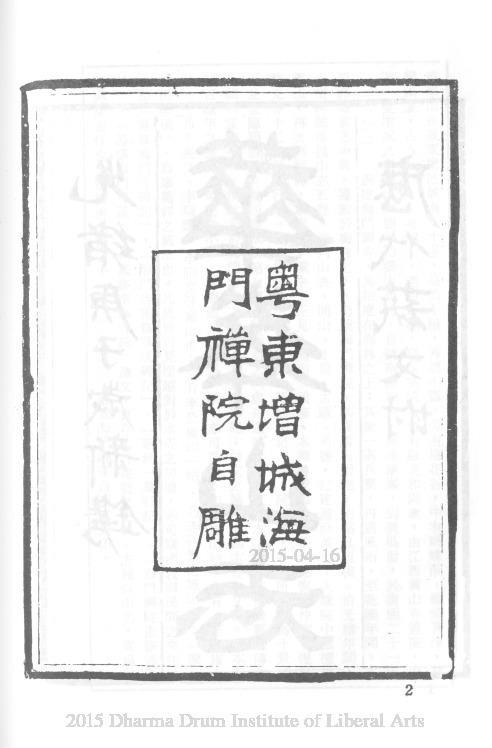 粵東增城海
門禪院自雕
2015-04-16
2
2015 Dharma Drum Institute of Liberal Arts